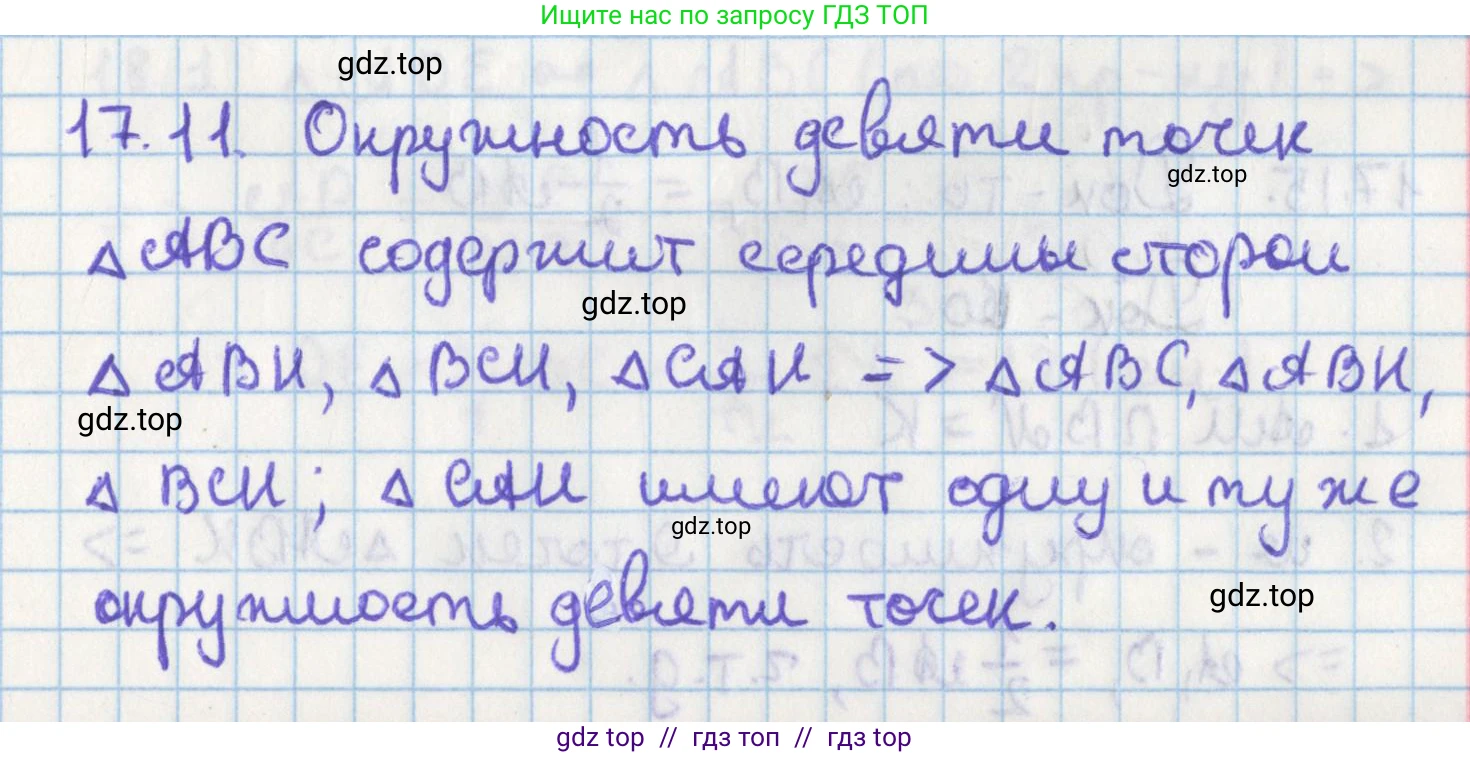 Ищите нас по запросу ГДЗ ТОП
gdz.top
17.11. Окружность девяти точек
gdz.top
△ ABC содержит середины сторон
gdz.top
△ ABH, △ BCH, △ CAH => △ ABC, △ ABH,
gdz.top
△ BCH; △ CAH имеют одну и ту же
gdz.top
окружность девяти точек.
gdz.top
gdz top // гдз топ // гдз top